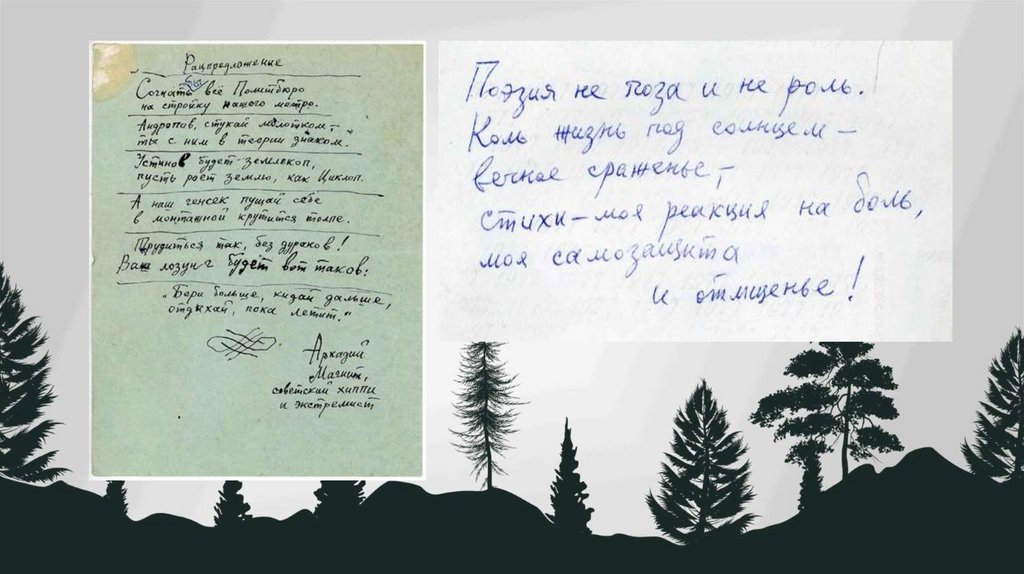 Рацпредложение
Согнать бы всё Политбюро
на стройку нашего метро.
Андропов, стукай молотком, –
ты с ним в теории знаком.
Устинов будет землекоп,
пусть роет землю, как Циклоп.
А наш генсек пущай себе
в монтажной крутится толпе.
Трудиться так, без дураков!
Ваш лозунг будет вот таков:
"Бери больше, кидай дальше,
отдыхай, пока летит."
Аркадий
Магнит,
советский хиппи
и экстремист
Поэзия не поза и не роль.
Коль жизнь под солнцем –
вечное сраженье, –
стихи – моя реакция на боль,
моя самозащита
и отмщенье!